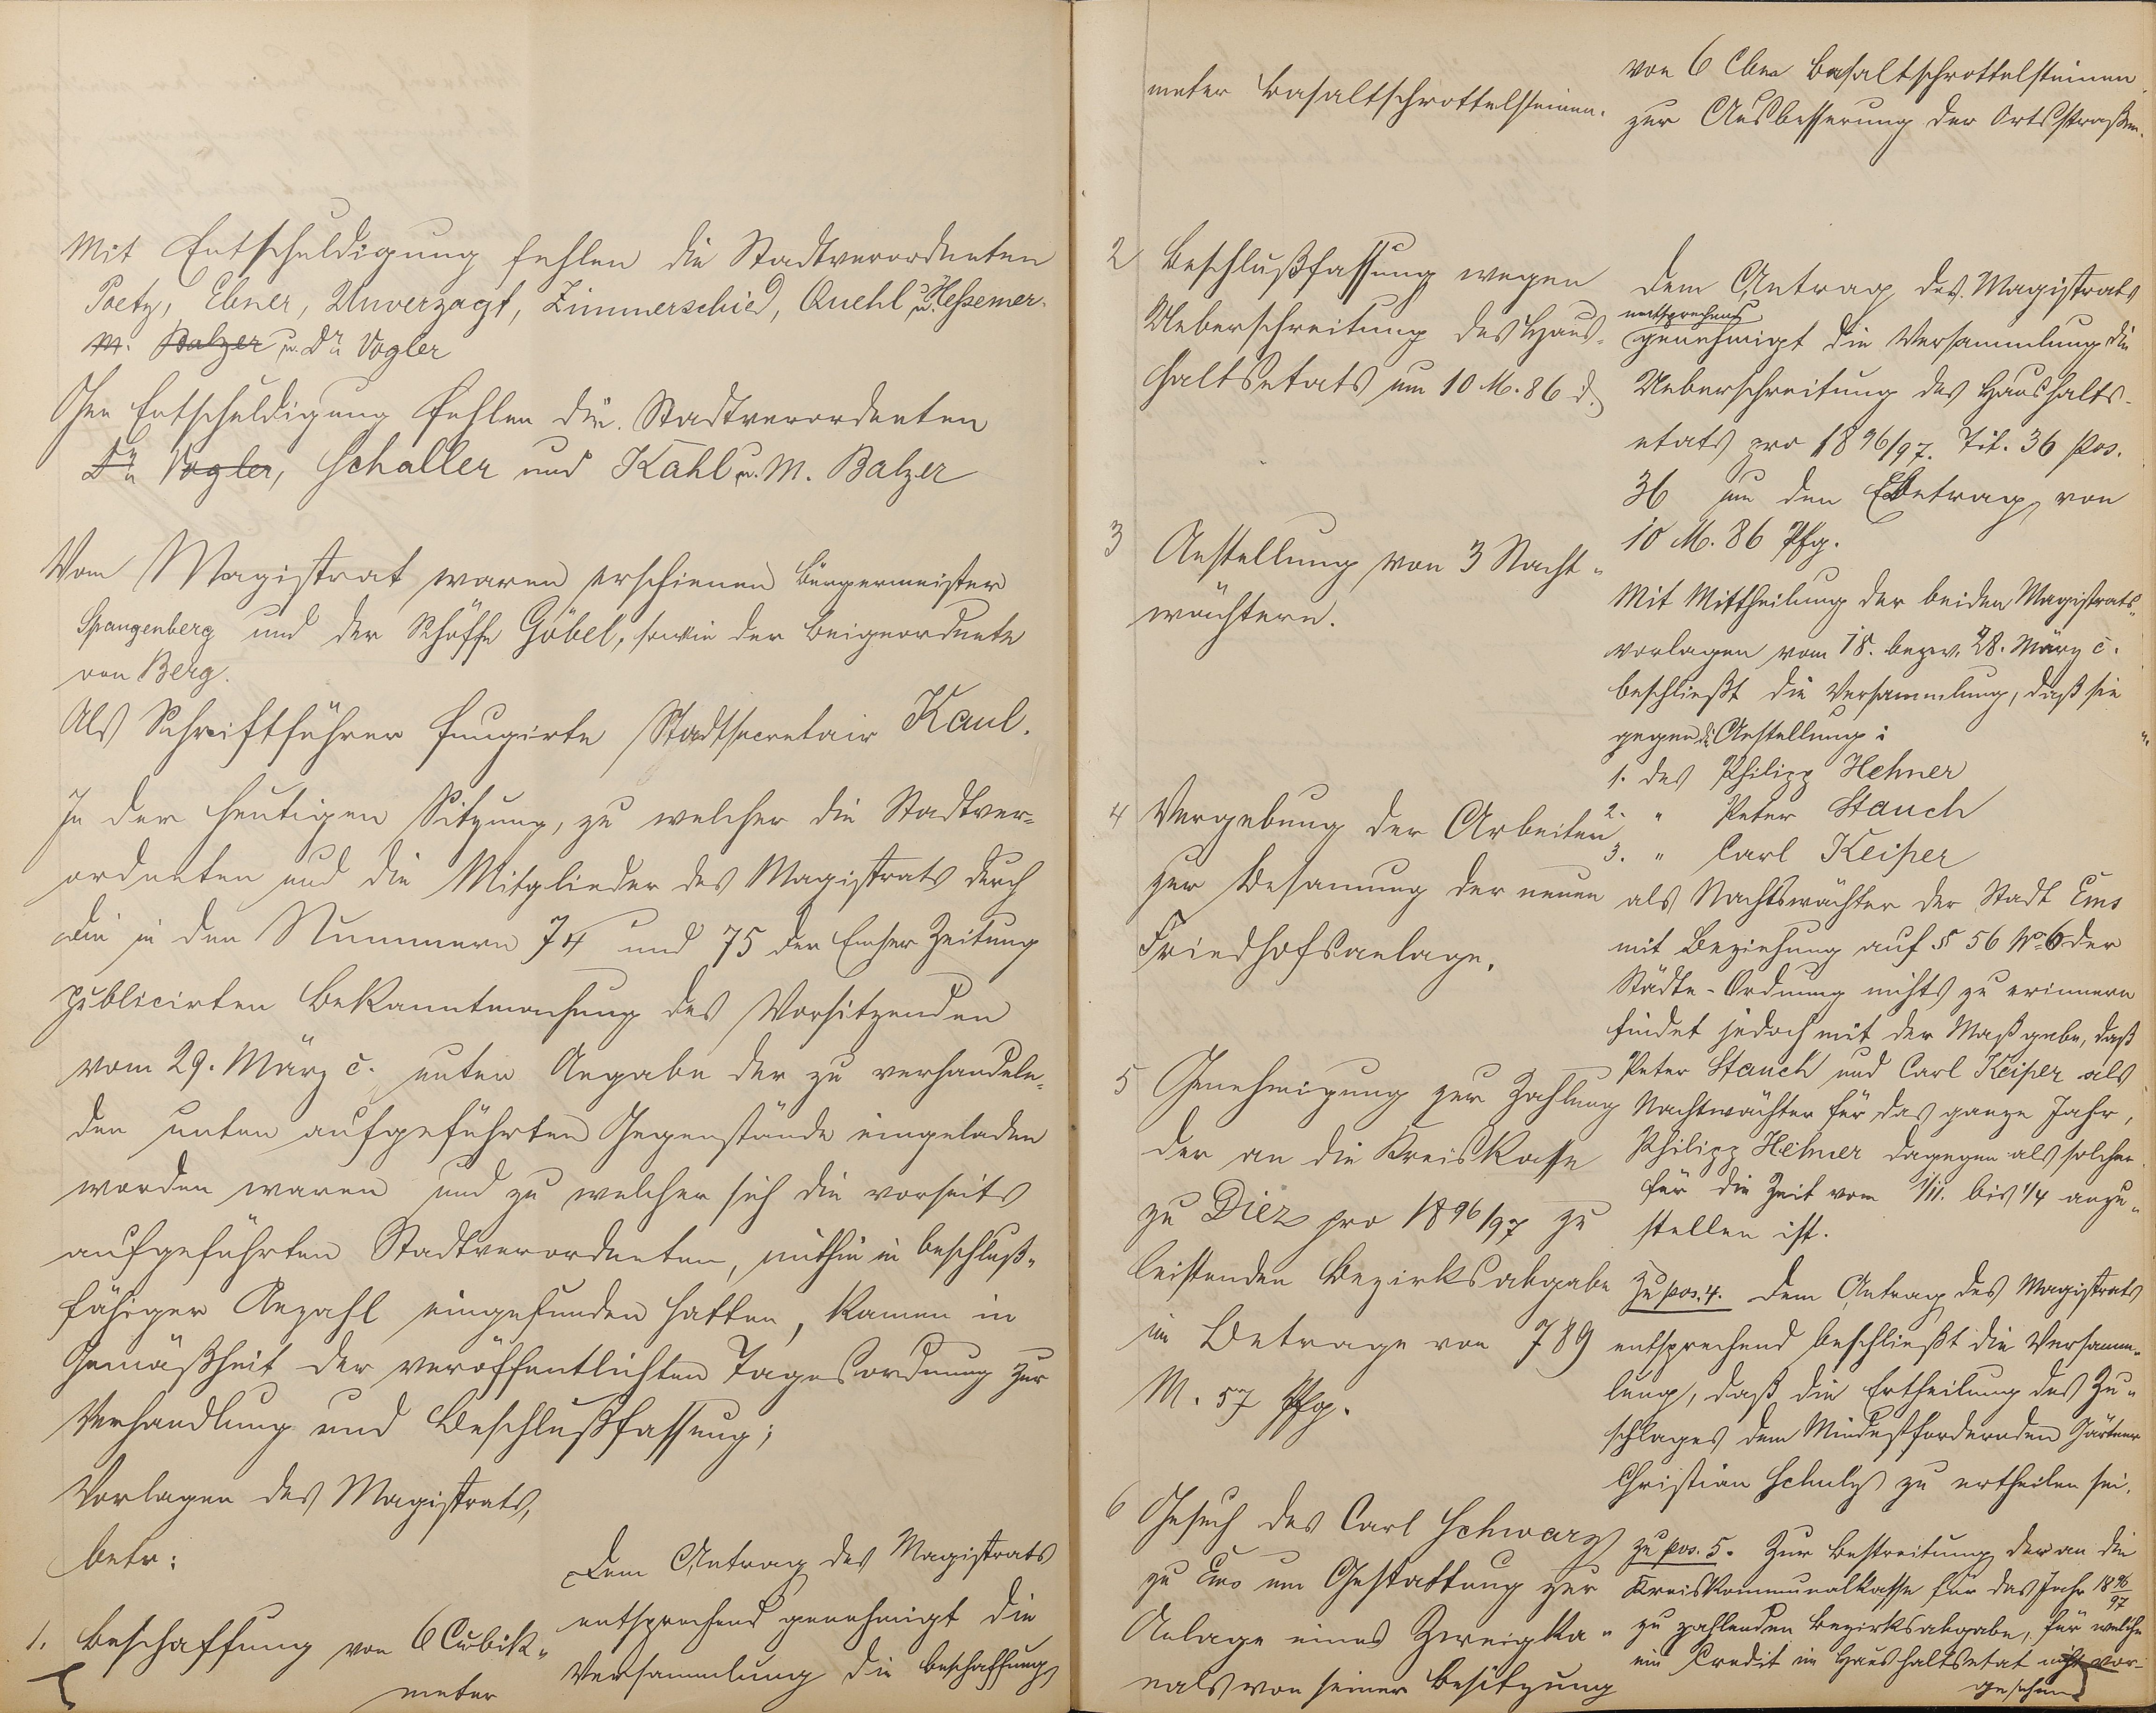 Mit Entschuldigung fehlen die Stadtverordneten
Poetz, Ebner, Unverzagt, Zimmerschied, Quehl u. Heßemer.
M. Balzer u. Dr. Vogler
Ohne Entschuldigung fehlen die Stadtverordneten
Dr. Vogler, Schaller und Kahl u. M. Balzer
Vom Magistrat waren erschienen Bürgermeister
Spangenberg und der Schöffe Göbel, sowie der Beigeordnete
von Berg.
Als Schriftführer fungirte Stadtsecretair Kaul.
In der heutigen Sitzung, zu welcher die Stadtver-
ordneten und die Mitglieder des Magistrats durch
die in den Nummern 74 und 75 der Emser Zeitung
publicirten Bekanntmachung des Vorsitzenden
vom 29. März c. unter Angabe der zu verhandeln-
den unten aufgeführten Gegenstände eingeladen
worden waren und zu welcher sich die vorseits
aufgeführten Stadtverordneten, mithin in beschluß-
fähiger Anzahl eingefunden hatten, kamen in
Gemäßheit der veröffentlichten Tagesordnung zur
Verhandlung und Beschlußfassung;
Vorlagen des Magistrats,
betr:
1. Beschaffung von 6 Cubik-
meter
Dem Antrag des Magistrats
entsprechend genehmigt die
Versammlung die Beschaffung
meter Basaltschrottelsteinen.
von 6 Cbm Basaltschrottelsteinen
zur Ausbesserung der Ortsstraßen.
2 Beschlußfassung wegen
Ueberschreitung des Haus-
haltsetats um 10 M. 86 d.
Dem Antrag des Magistrats
entsprechend
genehmigt die Versammlung die
Ueberschreitung des Haushalts-
etats pro 1896/97. Tit. 36 Pos.
36 um den Betrag von
10 M. 86 Pfg.
3 Anstellung von 3 Nacht-
wächtern.
Mit Mittheilung der beiden Magistrats-
vorlagen vom 18. bezw. 28. März c.
beschließt die Versammlung, daß sie
gegen die Anstellung:
1. des Philipp Hehner
2. " Peter Stauch
3. " Carl Keiper
als Nachtswächter der Stadt Ems
mit Beziehung auf § 56 No 6 der
Städte-Ordnung nichts zu erinnern
findet jedoch mit der Maßgabe, daß
Peter Stauch und Carl Keiper als
Nachtwächter für das ganze Jahr,
Philipp Hehner dagegen als solcher
für die Zeit vom 1/11. bis 1/4 anzu-
stellen ist.
4 Vergebung der Arbeiten
zur Besamung der neuen
Friedhofsanlage.
Zu pos. 4. Dem Antrag des Magistrats
entsprechend beschließt die Versamm-
lung, daß die Ertheilung des Zu-
schlages dem Mindestfordernden Gärtner
Christian Schulz zu ertheilen sei.
5 Genehmigung zur Zahlung
der an die Kreiskasse
zu Diez pro 1896/97 zu
leistenden Bezirksabgabe
im Betrage von 789
M. 57 Pfg.
zu pos. 5. Zur Bestreitung der an die
Kreiskommunalkasse für das Jahr 1896/97
zu zahlenden Bezirksabgabe, für welche
ein Credit im Haushaltsetat nicht vor-
gesehen
6 Gesuch des Carl Schwarz
zu Ems um Gestattung zur
Anlage eines Zweigka-
nals von seiner Besitzung